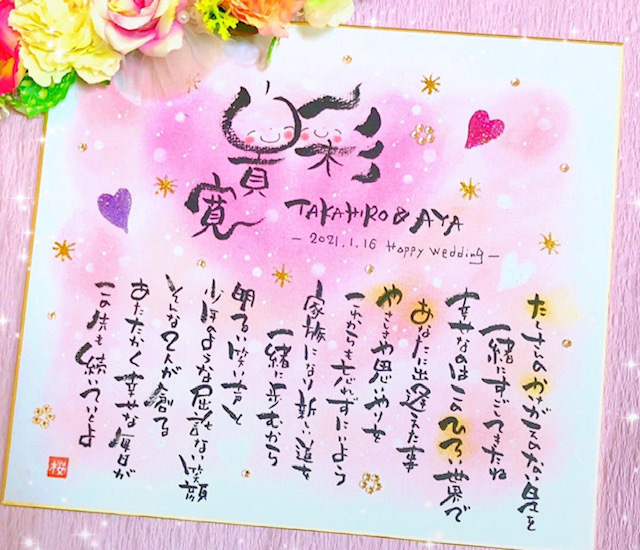 彩
貴寛
TAKAHIRO & AYA
– 2021.1.16 Happy Wedding –
たくさんの かけがえのない日々を
一緒にすごしてきたね
幸せなのはこの ひろい世界で
あなたに出逢えた事
やさしさや思いやりを
これからも忘れずにいよう
家族になり新しい道を
一緒に歩むから
明るい笑い声と
少年のような屈託ない笑顔
そんな2人が創る
あたたかく幸せな毎日が
この先も続いていくよ
桜